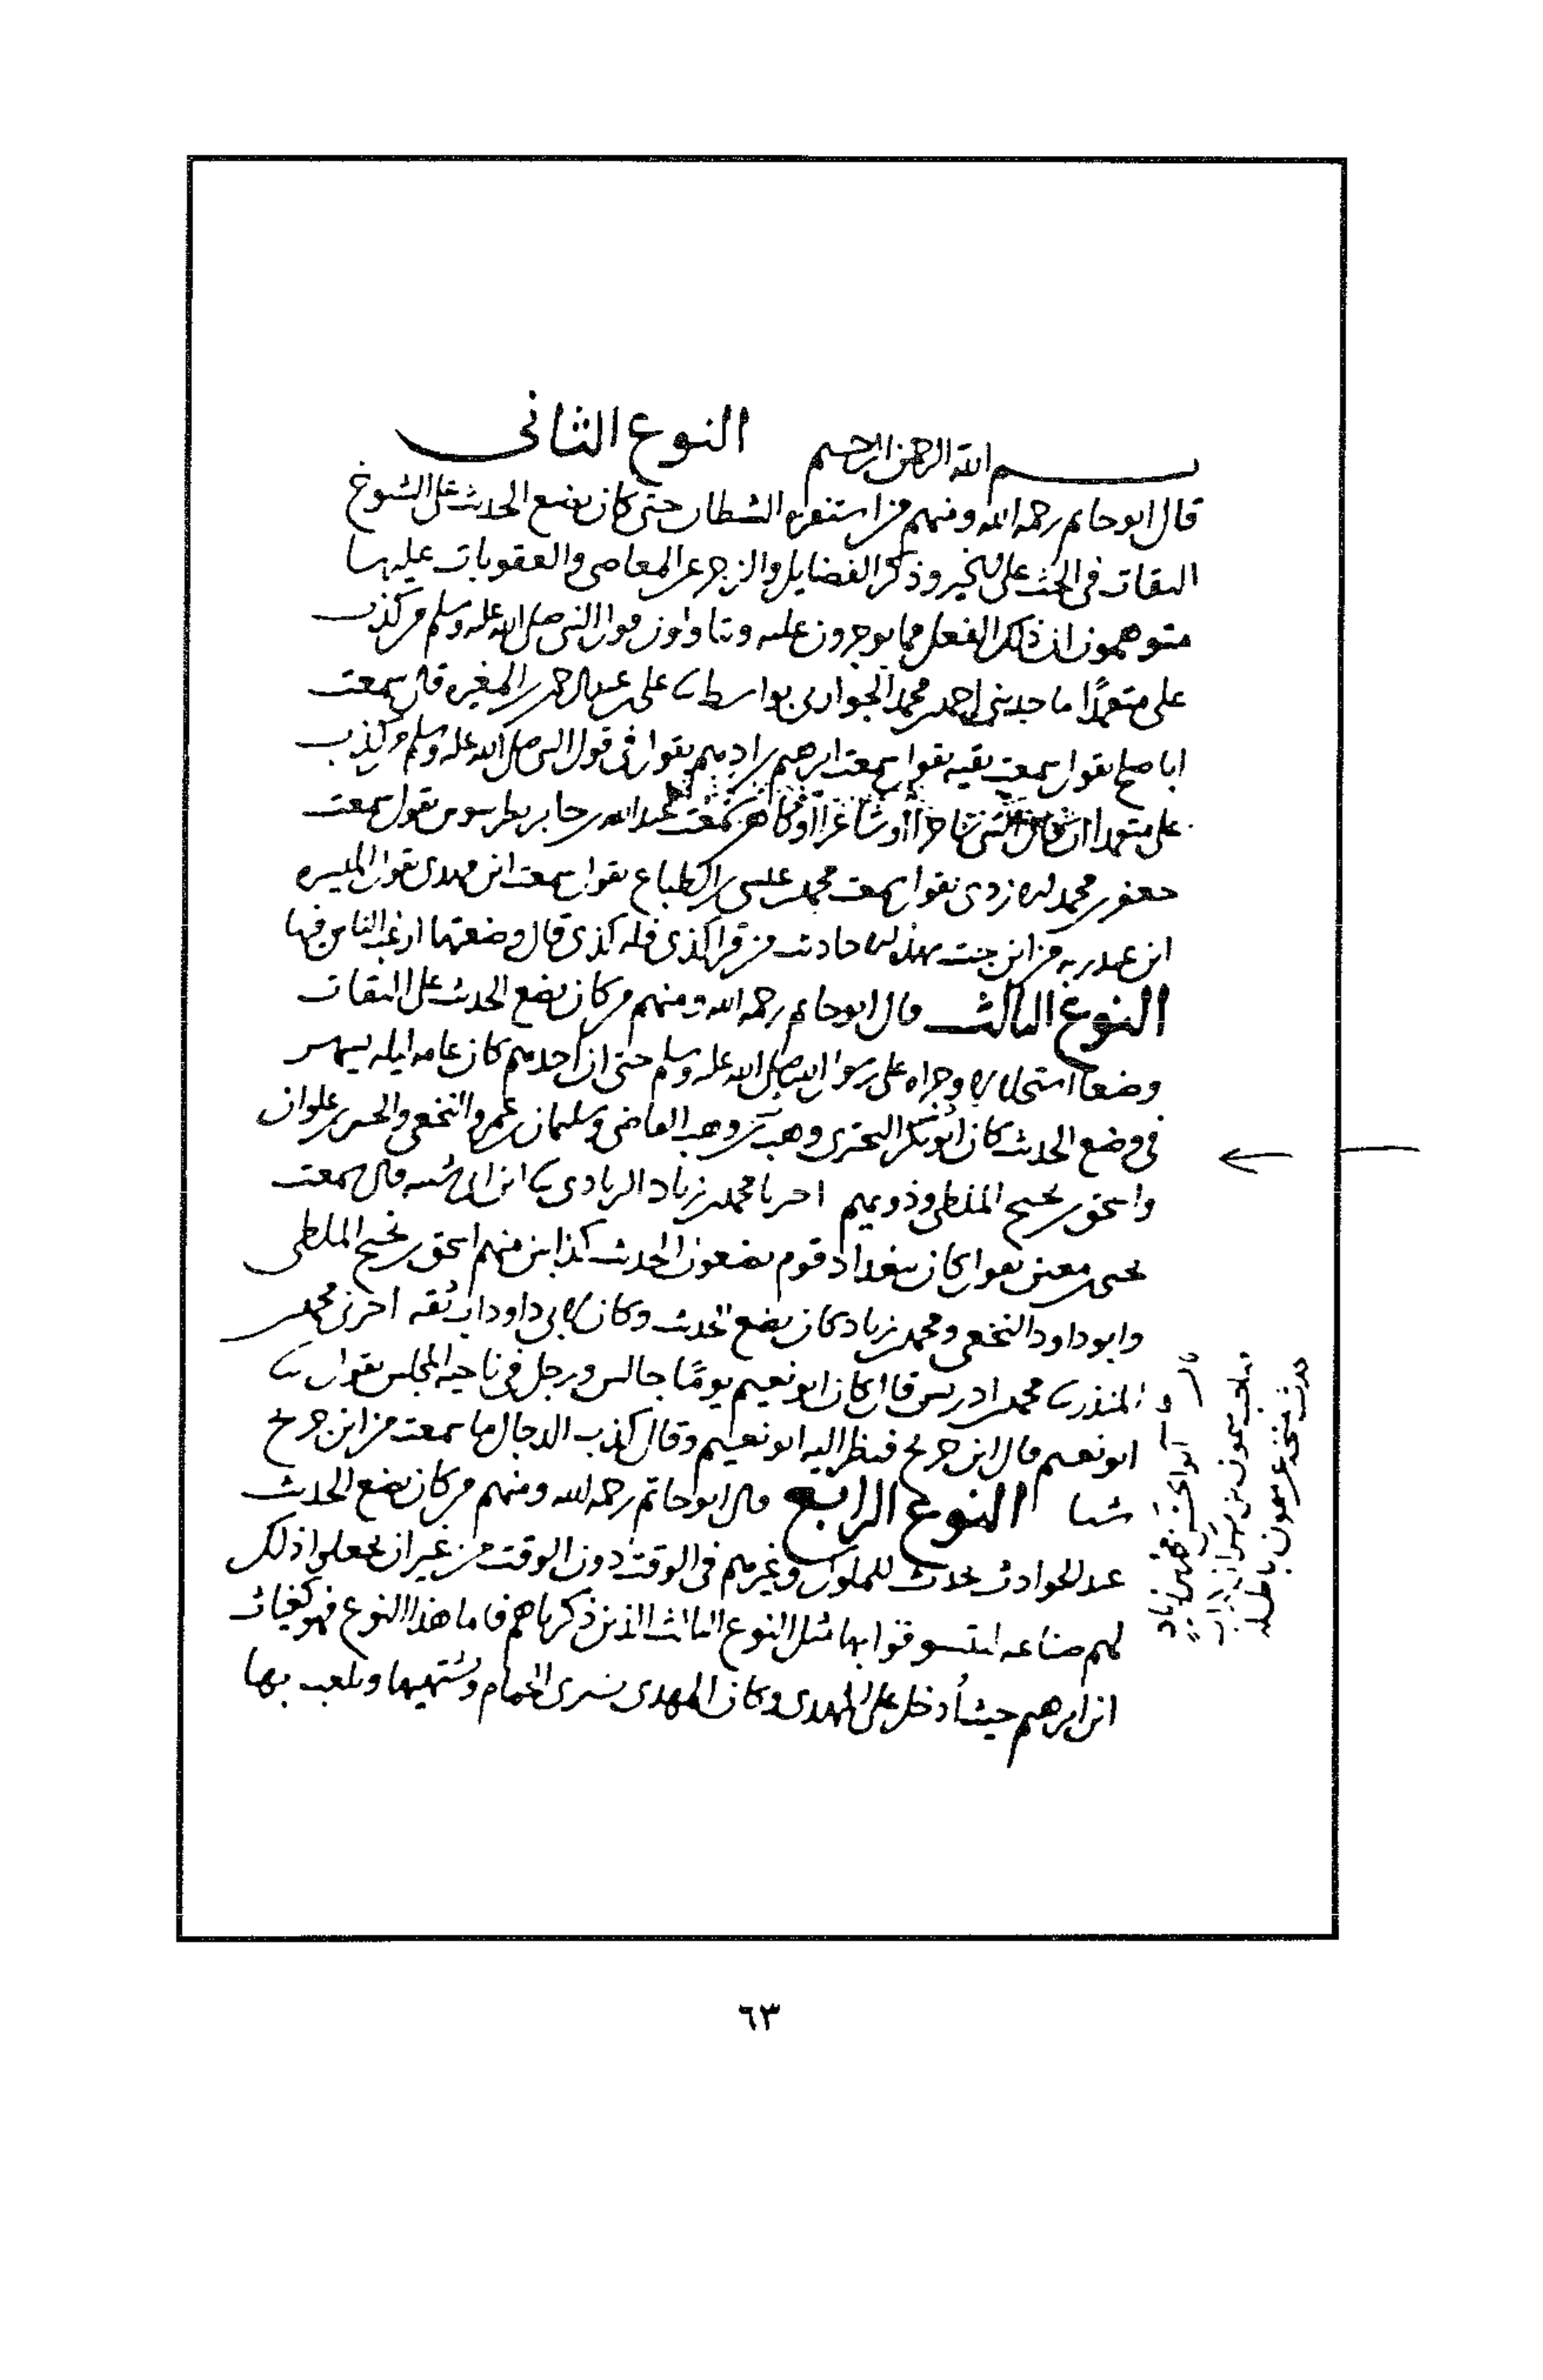 بسم الله الرحمن الرحيم النوع الثاني
قال ابو حاتم رحمه الله ومنهم من استفزه الشيطان حتى كان يضع الحديث على الشيوخ
الثقات في الحث على الخير وذكر الفضايل والزجر عن المعاصي والعقوبات عليها
متوهمون ان ذلك الفعل مما يوجرون عليه وتاولون قول النبي صلى الله عليه وسلم من كذب
على متعمدًا ما حدثني احمد بن محمد الجواربي بواسط ثنا علي بن عبد الرحمن بن المغيرة قال سمعت
ابا صالح يقول سمعت بقيه يقول سمعت ابرهيم بن ادهم يقول في قول النبي صلى الله عليه وسلم من كذب
على متعمدا ان قال انني شاعرا او كاهن سمعت عبد الله بن جابر بطرسوس يقول سمعت
جعفر بن محمد الازدي يقول سمعت محمد بن عيسى بن الطباع يقول سمعت ابن مهدي يقول لميسره
ابن عبد ربه من اين جئت بهذه الاحاديث من قرا كذى فله كذى قال وضعتها ارغب الناس فيها
النوع الثالث قال ابو حاتم رحمه الله ومنهم من كان يضع الحديث على الثقات
وضعا استحلالا وجراه على رسول الله صلى الله عليه وسلم حتى ان احدهم كان عامه ليله يسهر
في وضع الحديث كان ابو البختري وهب بن وهب القاضي وسليمان بن عمرو النخعي والحسن بن علوان
واسحق بن نجيح الملطي وذويهم اخبرنا محمد بن زياد الزيادي ثنا ابن ابي شيبه قال سمعت
يحيى بن معين يقول كان ببغداد قوم يضعون الحديث كذابين منهم اسحق بن نجيح الملطي
وابو داود النخعي ومحمد بن زياد كان يضع الحديث وكان لابي داود اب ثقه اخبرني محمد بن
المنذر ثنا محمد بن ادريس قال كان ابو نعيم يومًا جالس ورجل في ناحيه المجلس يقول ثنا
ابو نعيم قال ابن جريج فنظر اليه ابو نعيم وقال كذب الدجال ما سمعت من ابن جريج
شيا النوع الرابع قال ابو حاتم رحمه الله ومنهم من كان يضع الحديث
عند الحوادث يحدث للملوك وغيرهم في الوقت دون الوقت من غير ان يجعلوا ذلك
لهم صناعه ليتسوقوا بها مثل النوع الثالث الذين ذكرناهم فاما هذا النوع فهو كغياث
ابن ابرهيم حيث أدخل على المهدي وكان المهدي يشتري الحمام ويشتهيها ويلعب بها
حدث نسخه عن ميمون باطله
٦٣